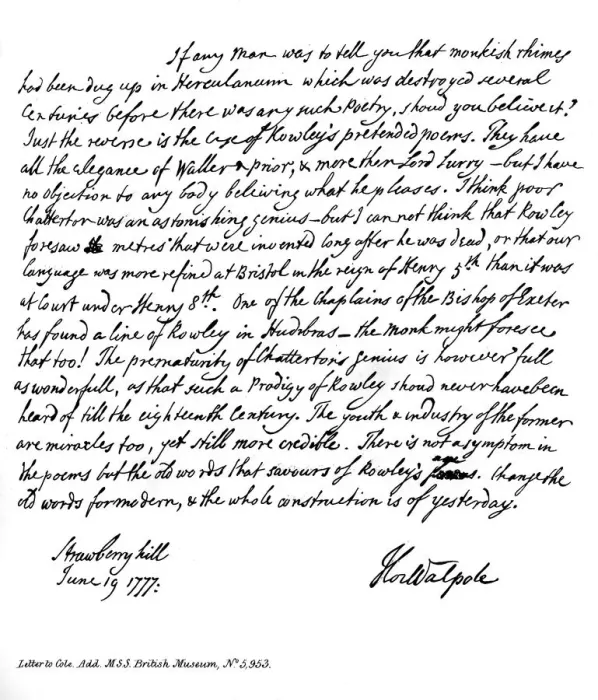 If any Man was to tell you that monkish rhimes
had been dug up in Herculaneum which was destroyed several
Centuries before there was any such Poetry, shoud you believe it?
Just the reverse is the Case of Rowley's pretended poems. They have
all the elegance of Waller & prior, & more than Lord Surry – but I have
no objection to any body believing what he pleases. I think poor
Chatterton was an astonishing genius – but I can not think that Rowley
foresaw metres that were invented long after he was dead, or that our
Language was more refined at Bristol in the reign of Henry 5th than it was
at Court under Henry 8th. One of the Chaplains of the Bishop of Exeter
has found a line of Rowley in Hudibras – the Monk might foresee
that too! The prematurity of Chatterton's genius is however full
as wonderfull, as that such a Prodigy of Rowley shoud never have been
heard of till the eighteenth Century. The youth & industry of the former
are miracles too, yet still more credible. There is not a symptom in
the poems but the old words that savours of Rowley's age. Change the
old words for modern, & the whole construction is of yesterday.
Strawberry hill
June 19 1777:
Hor Walpole
Letter to Cole. Add. MSS. British Museum, No 5,953.